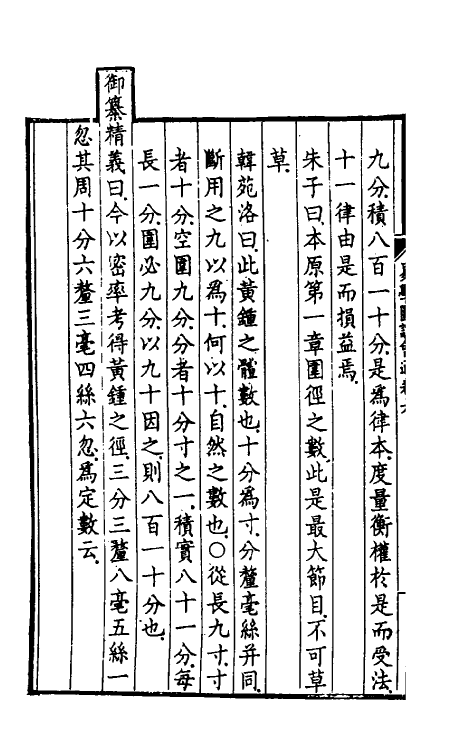 九分積八百一十分是為律本度量衡權於是而受法
十一律由是而損益焉
朱子曰本原第一章圍徑之數此是最大節目不可草
草
韓苑洛曰此黃鍾之體數也十分為寸分釐毫絲并同
斷用之九以為十何以十自然之數也〇從長九寸寸
者十分空圍九分分者十分寸之一積實八十一分每
長一分圍必九分以九十因之則八百一十分也
御纂精義曰今以密率考得黃鍾之徑三分三釐八毫五絲一
忽其周十分六釐三毫四絲六忽為定數云